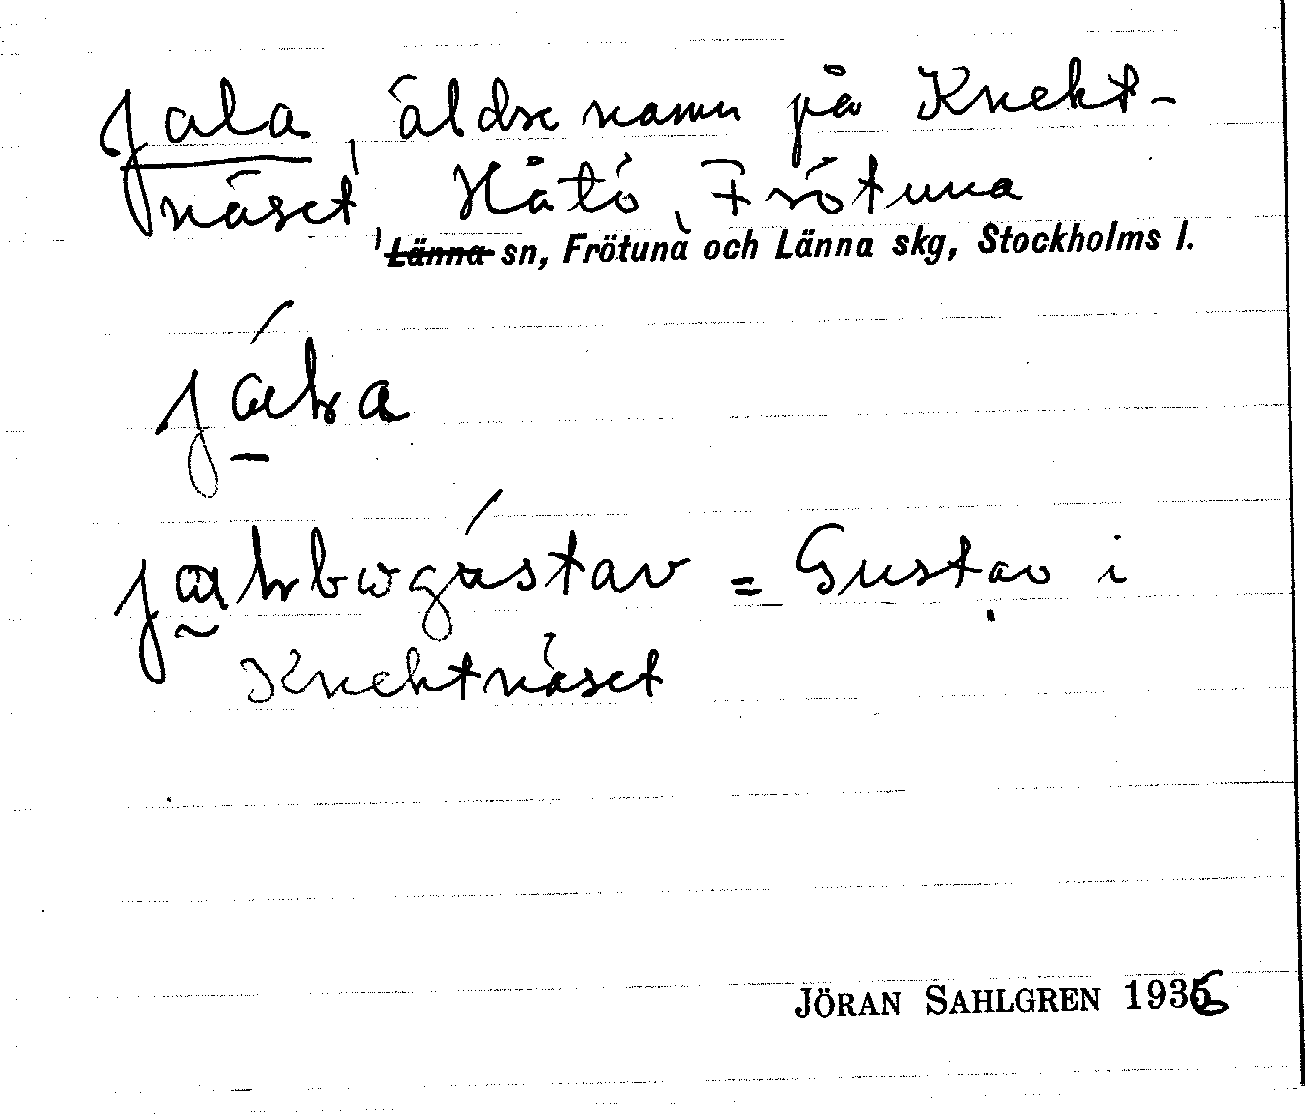 Jala, äldre namn på Knekt-
näset, Håtö, Frötuna
Länna sn, Frötuna och Länna skg, Stockholms l.
Gustav i
Knektnäset
JÖRAN SAHLGREN 1936